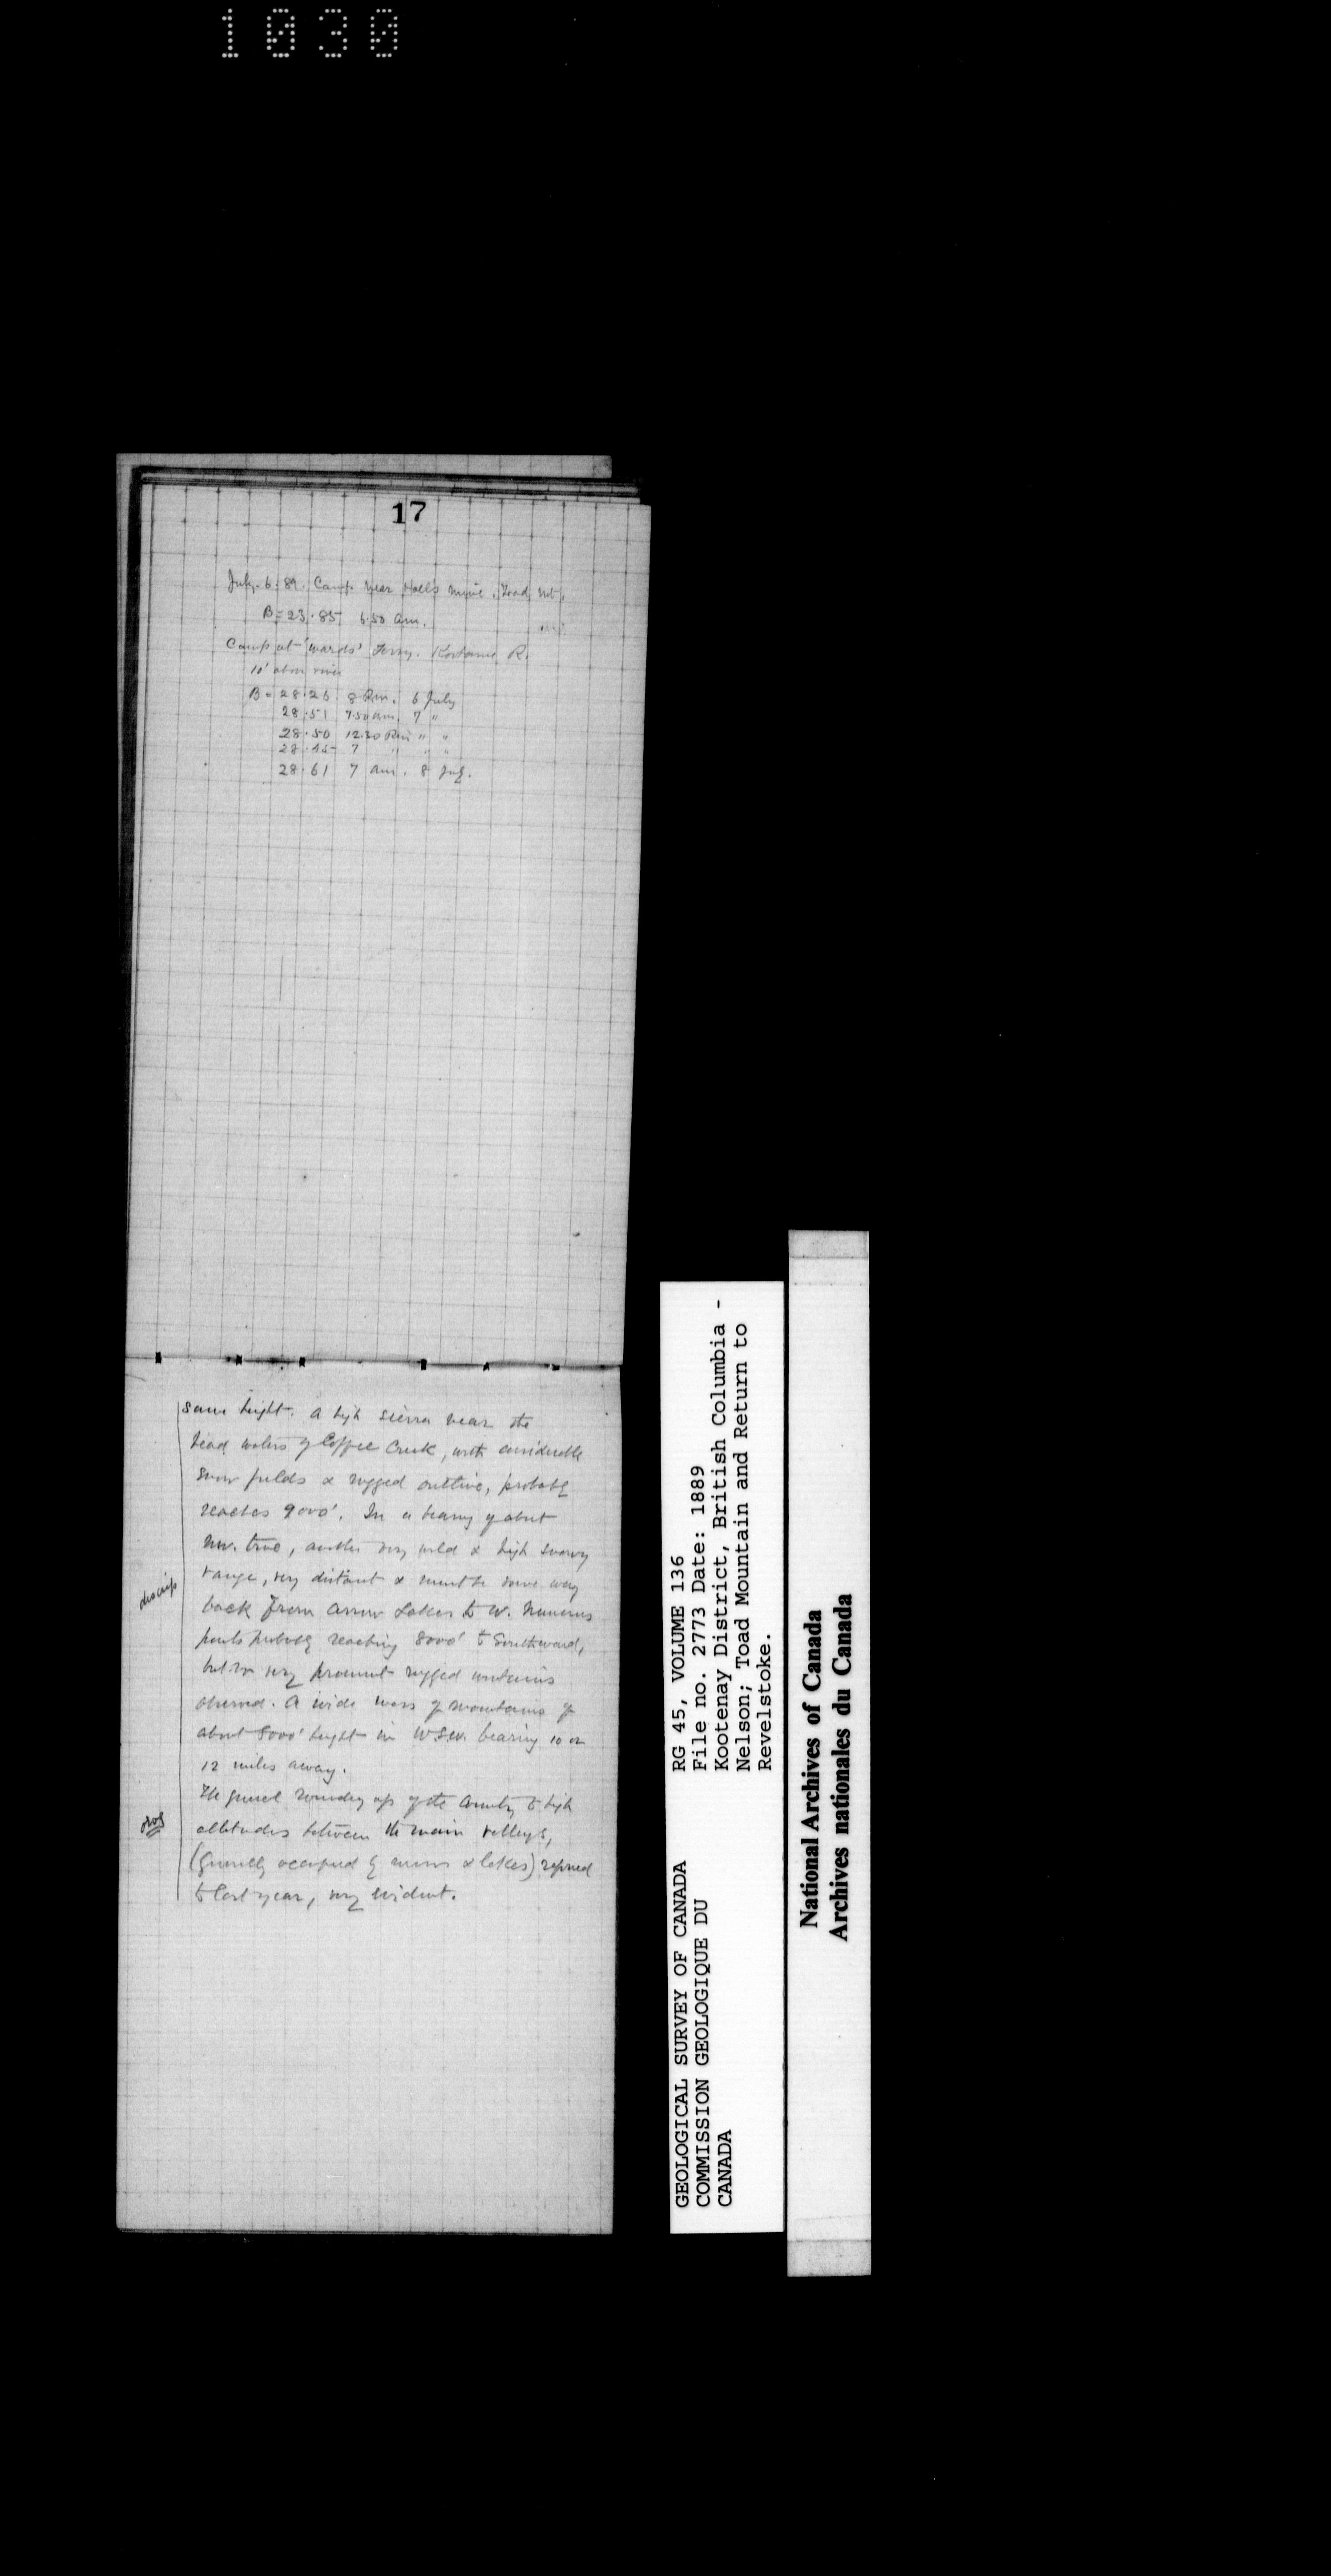 1030
17
July. 6. 89. Camp near Hall's mine, Toad Mt.
B = 23.85 6.50 am.
Camp at Wards' Ferry. Kootanie R.
10' above river
B = 28.26 8 P.m. 6 July
28.51 7.50 am. 7 "
28.50 12.30 Pm " "
28.45 7 " " "
28.61 7 am. 8 July.
same height. A high sierra near the
head waters of Coffee Creek, with considerable
snow fields & rugged outline, probably
reaches 9000'. In a bearing of about
NW. true, another very wild & high snowy
range, very distant & must be some way
descrip
back from Arrow Lakes to W. Numerous
points probably reaching 8000' to Southward,
but no very prominent rugged mountains
observed. A wide mass of mountains of
about 8000' height in WSW. bearing 10 or
12 miles away.
The general rounding up of the country to high
altitudes between the main valleys,
(generally occupied by rivers & lakes) referred
to last year, very evident.
GEOLOGICAL SURVEY OF CANADA
COMMISSION GEOLOGIQUE DU
CANADA
RG 45, VOLUME 136
File no. 2773 Date: 1889
Kootenay District, British Columbia -
Nelson; Toad Mountain and Return to
Revelstoke.
National Archives of Canada
Archives nationales du Canada